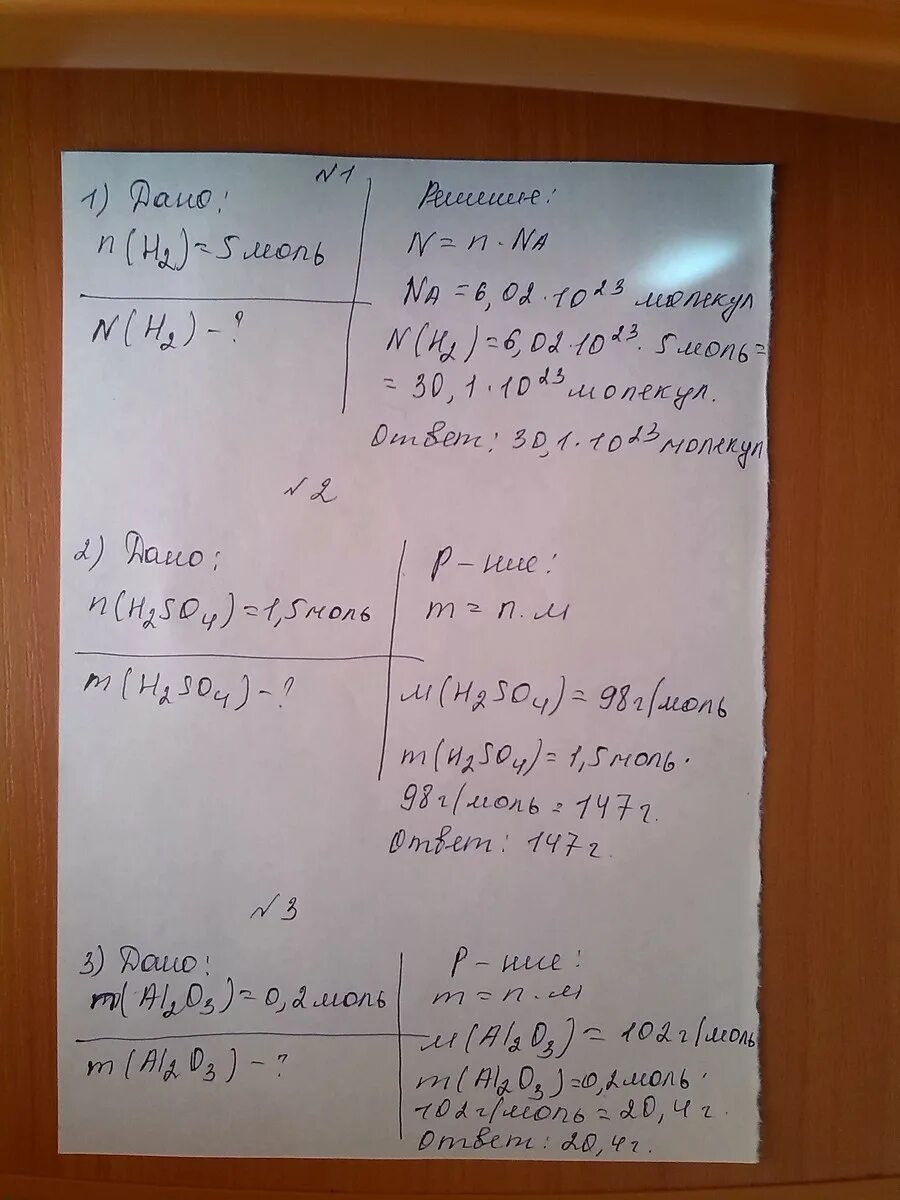 №1
1) Дано:
n(H₂)=5моль
N(H₂)-?
Решение:
N=n·NA
NA=6,02·10²³ молекул
N(H₂)=6,02·10²³·5моль=
=30,1·10²³молекул.
Ответ: 30,1·10²³молекул
№2
2) Дано:
n(H₂SO₄)=1,5моль
m(H₂SO₄)-?
Р-ние:
m=n·M
M(H₂SO₄)=98г/моль
m(H₂SO₄)=1,5моль·
98г/моль=147г.
Ответ: 147г.
№3
3) Дано:
m(Al₂O₃)=0,2моль
m(Al₂O₃)-?
Р-ние:
m=n·M
M(Al₂O₃)=102г/моль
m(Al₂O₃)=0,2моль·
102г/моль=20,4г.
Ответ: 20,4г.